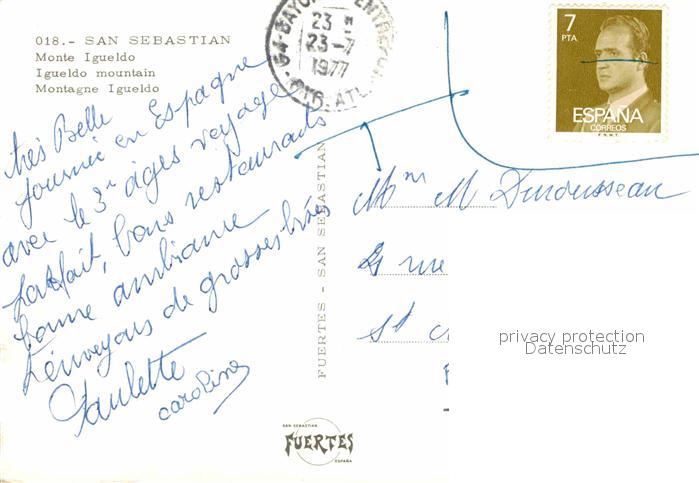 018.- SAN SEBASTIAN
Monte Igueldo
Igueldo mountain
Montagne Igueldo
très Belle
journée en Espagne
avec le 3e âges voyage
parfait, bons restaurants
bonne ambiance
envoyons de grosses bises
Paulette
Caroline
FUERTES - SAN SEBASTIAN
SAN SEBASTIAN
FUERTES
ESPAÑA
23
23-7
1977
7
PTA
ESPAÑA
CORREOS
F.N.M.T.
M
rue
St
privacy protection
Datenschutz